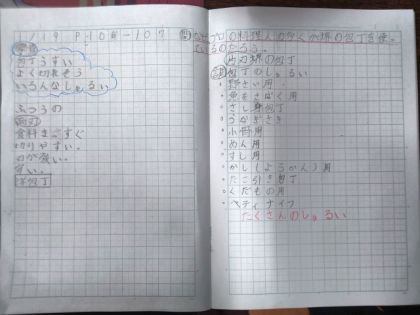 1/19 P106-107
予想
包丁うすい
よく切れそう
いろんなしゅるい
ふつうの
両刃
食料をまっすぐ
切りやすい。
刃が
安い。
洋包丁
なぜプロの料理人の多くが堺の包丁を使っ
ているのだろう。
片刃堺の包丁
包丁のしゅるい
・野さい用
・魚をさばく用
・さし身包丁
・うなぎさき
・小骨用
・めん用
・すし用
・かし(ようかん)用
・たこ引き包丁
・くだもの用
・ペティナイフ
たくさんのしゅるい